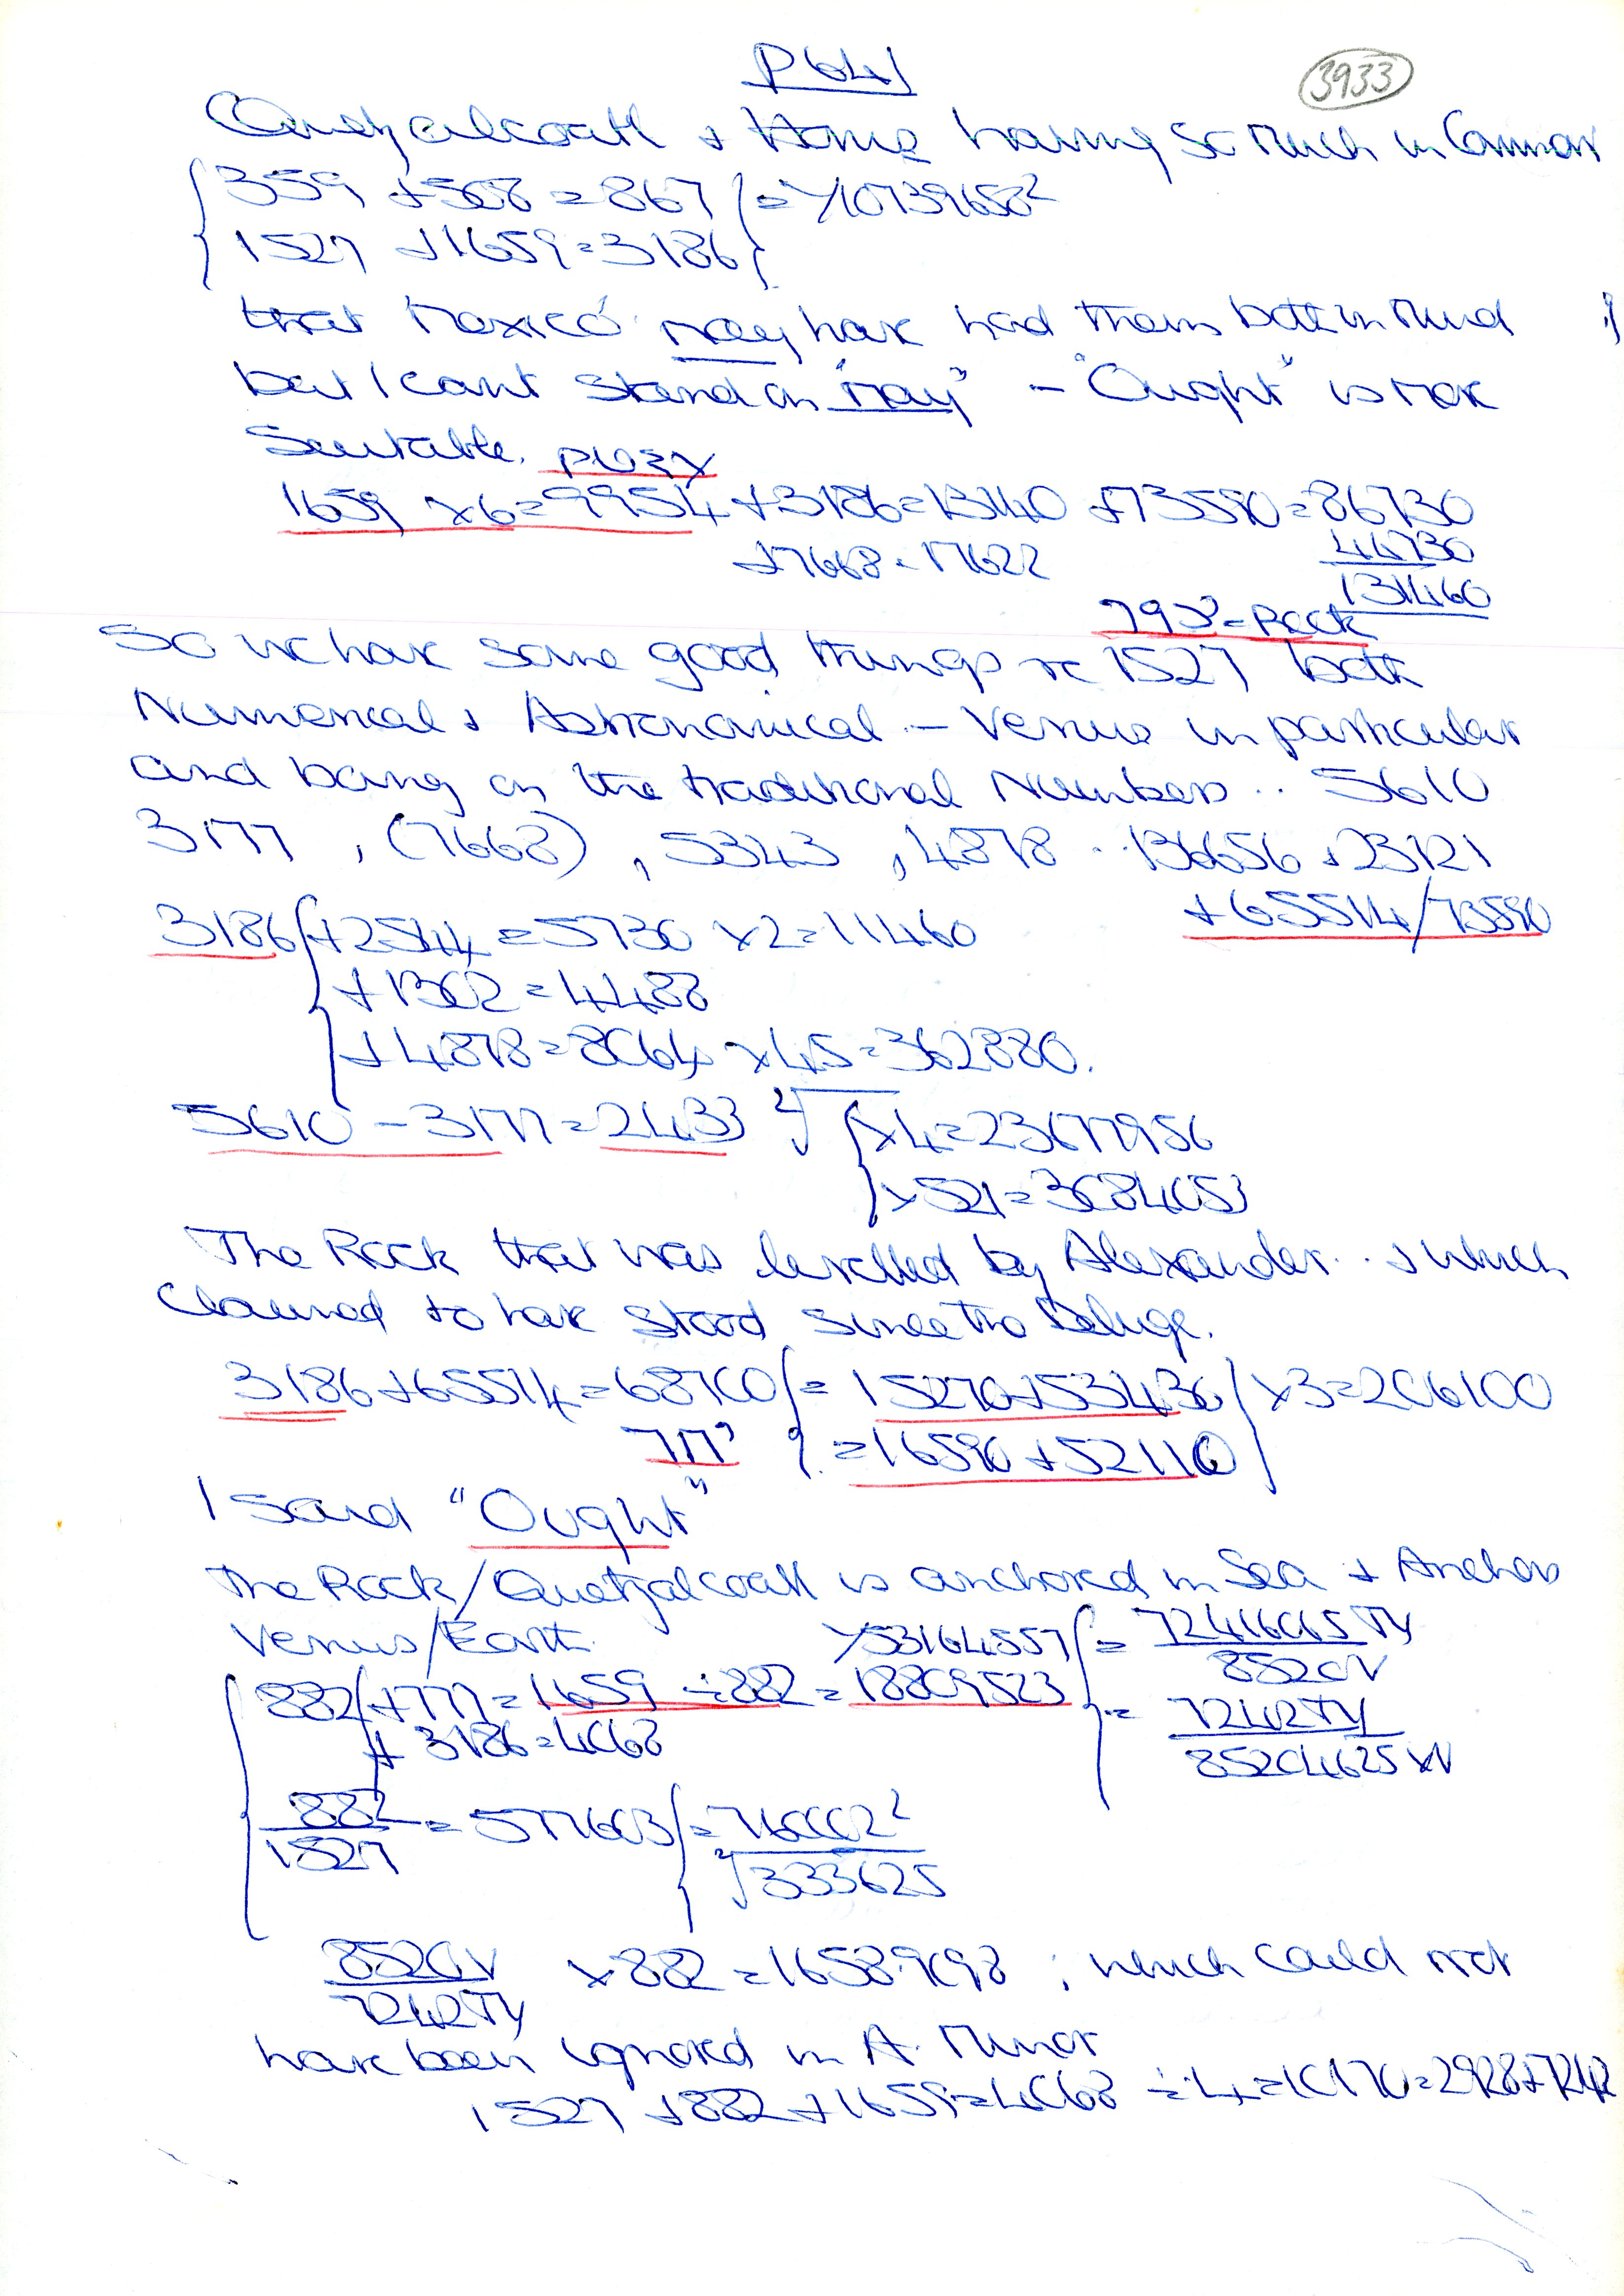 P64
3933
Quetzalcoatl + having so much in Common
359 + 508 = 867
1527 + 1659 = 3186
that Mexico may have had them both in Mind
but I cant stand on "May" – "Ought" is more
Suitable.
1659 x 6 = 9954 + 3186 = 13140 + 73590 = 86730
+ 7668 = 17622
44730
131460
793² = Rock
So we have some good things re 1527 both
Numerical + Astronomical – Venus in particular
and being on the traditional Numbers .. 5610
3177, (7668), 5343, 4878 .. 136656 + 23121
+ 65514/73590
3186 + 2544 = 5730 x 2 = 11460
+ 1302 = 4488
+ 4878 = 8064 x 45 = 362880.
5610 – 3177 = 2433
x 4 = 23677956
x 521 = 3684053
The Rock that was levelled by Alexander .. + which
claimed to have stood since the Deluge.
3186 + 65514 = 68700 = 15270 + 53430 x 3 = 206100
= 16590 + 52110
I said "Ought"
The Rock/Quetzalcoatl is anchored in Sea + Anchors
Venus/Earth
x 53164557 = 72416065 TY
8520V
882 + 777 = 1659 ÷ 882 = 18809523
+ 3186 = 4068
= 7242TY
85204625 x V
882
1527 = 577603 = 760002²
√333625
8520V x 882 = 16589098 ; which could not
7242TY
have been ignored in A. Minor
1527 + 882 + 1659 = 4068 ÷ 4 = 10170 = 2928 + 7242